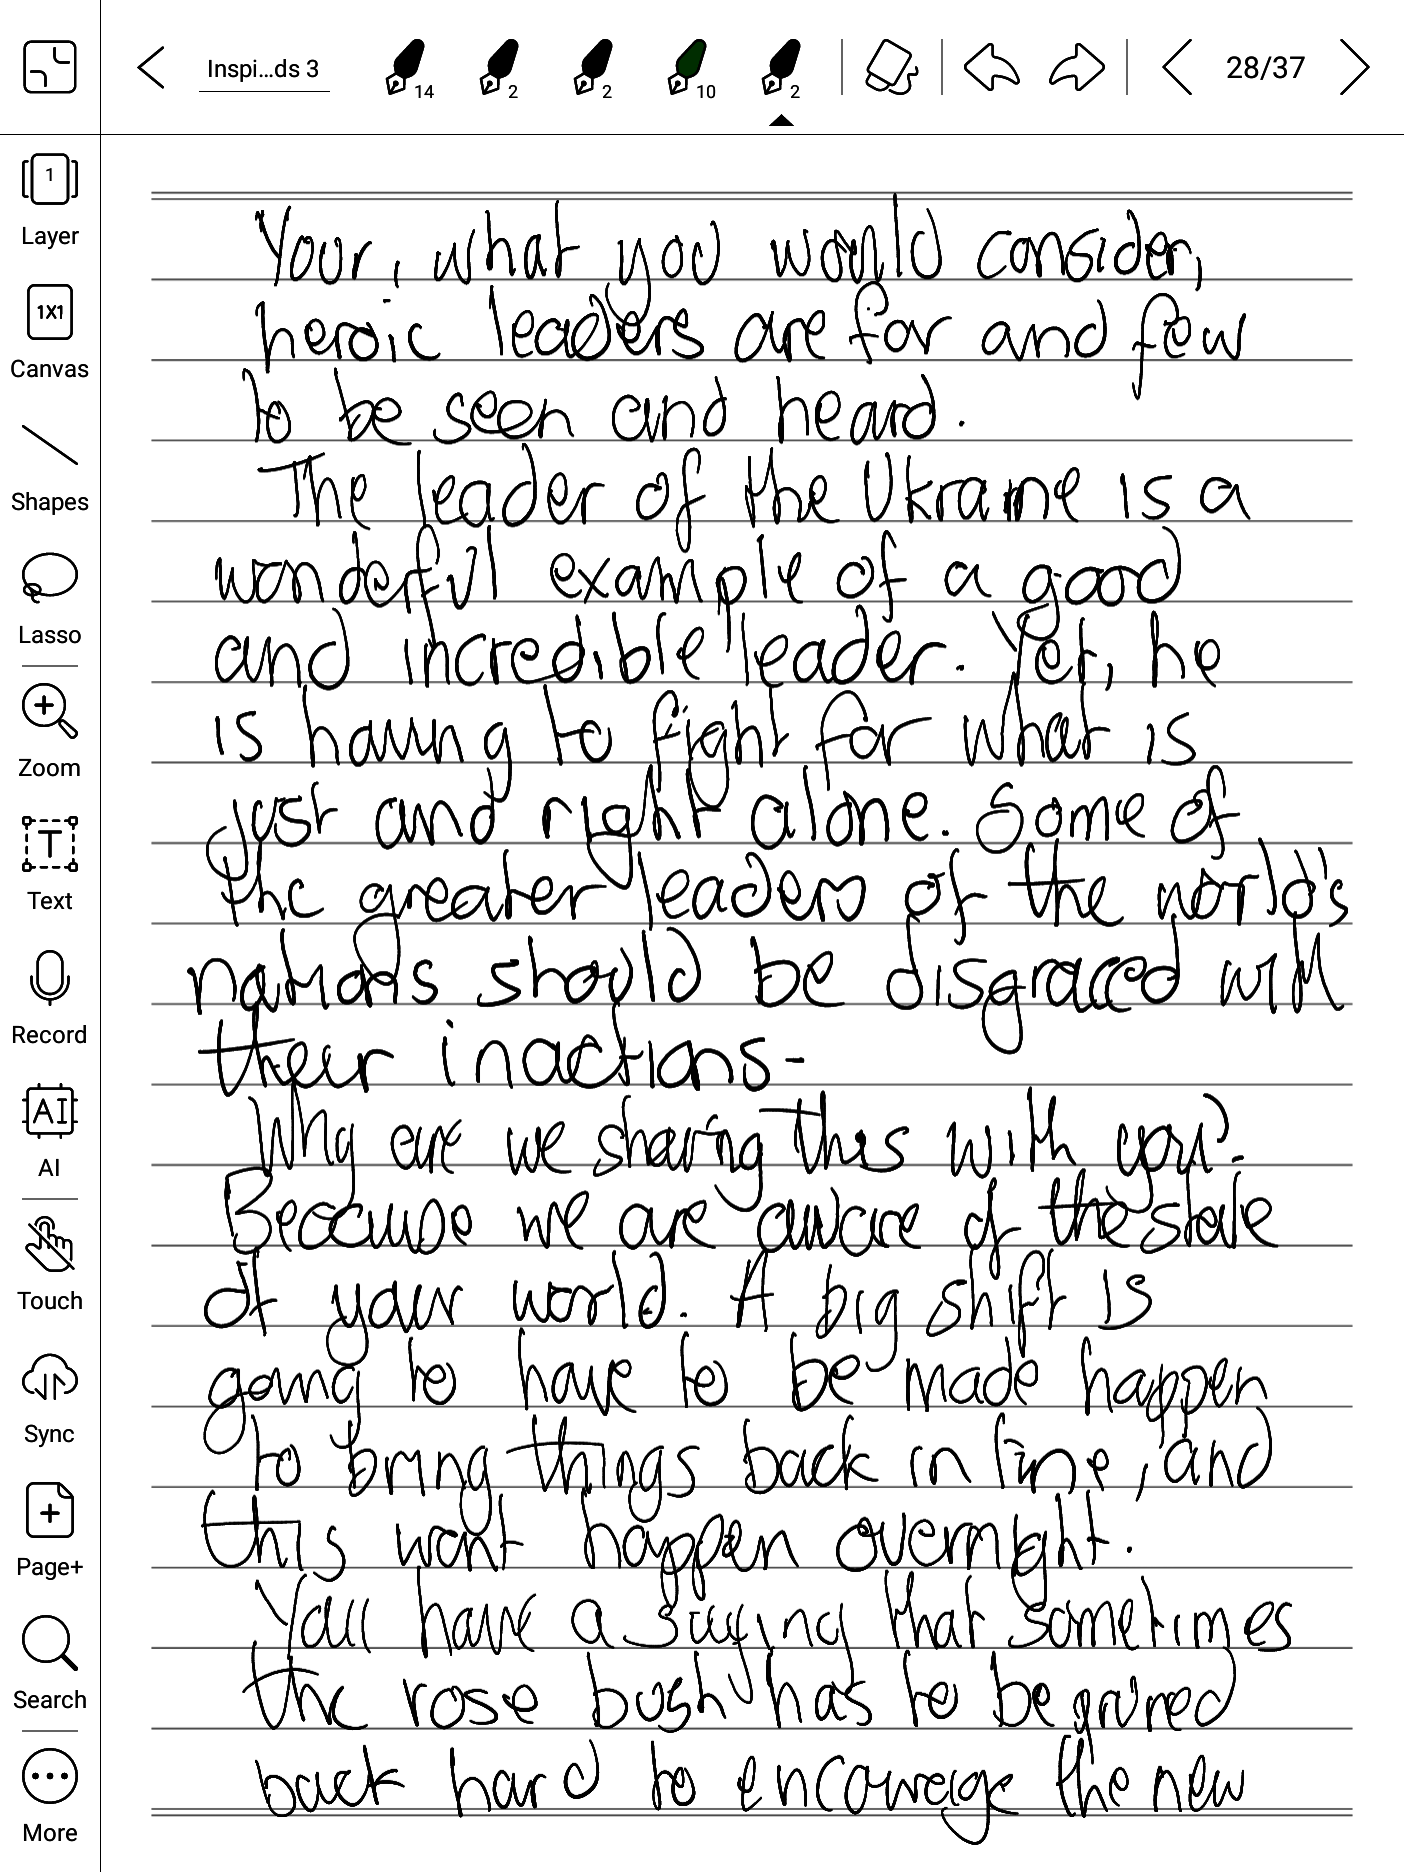 Inspi...ds 3
14
2
2
10
2
28/37
1
Layer
1X1
Canvas
Shapes
Lasso
Zoom
T
Text
Record
AI
AI
Touch
Sync
Page+
Search
More
Your, what you would consider,
heroic leaders are far and few
to be seen and heard.
The leader of the Ukraine is a
wonderful example of a good
and incredible leader. Yet, he
is having to fight for what is
just and right alone. Some of
the greater leaders of the world's
nations should be disgraced with
their inactions-
Why are we sharing this with you?
Because we are aware of the state
of your world. A big shift is
going to have to be made happen
to bring things back in line, and
this wont happen overnight.
Yall have a saying that sometimes
the rose bush has to be pruned
back hard to encourage the new